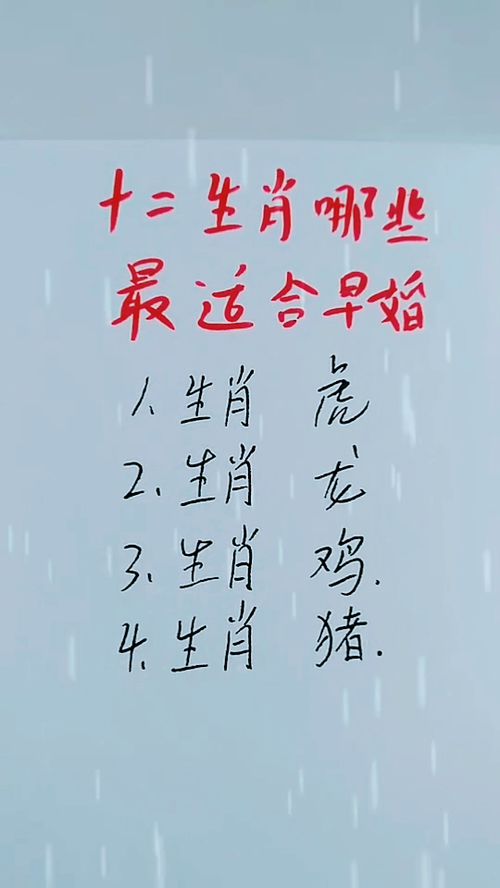 十二生肖哪些
最适合早婚
1、生肖 虎
2、生肖 龙
3、生肖 鸡.
4、生肖 猪.